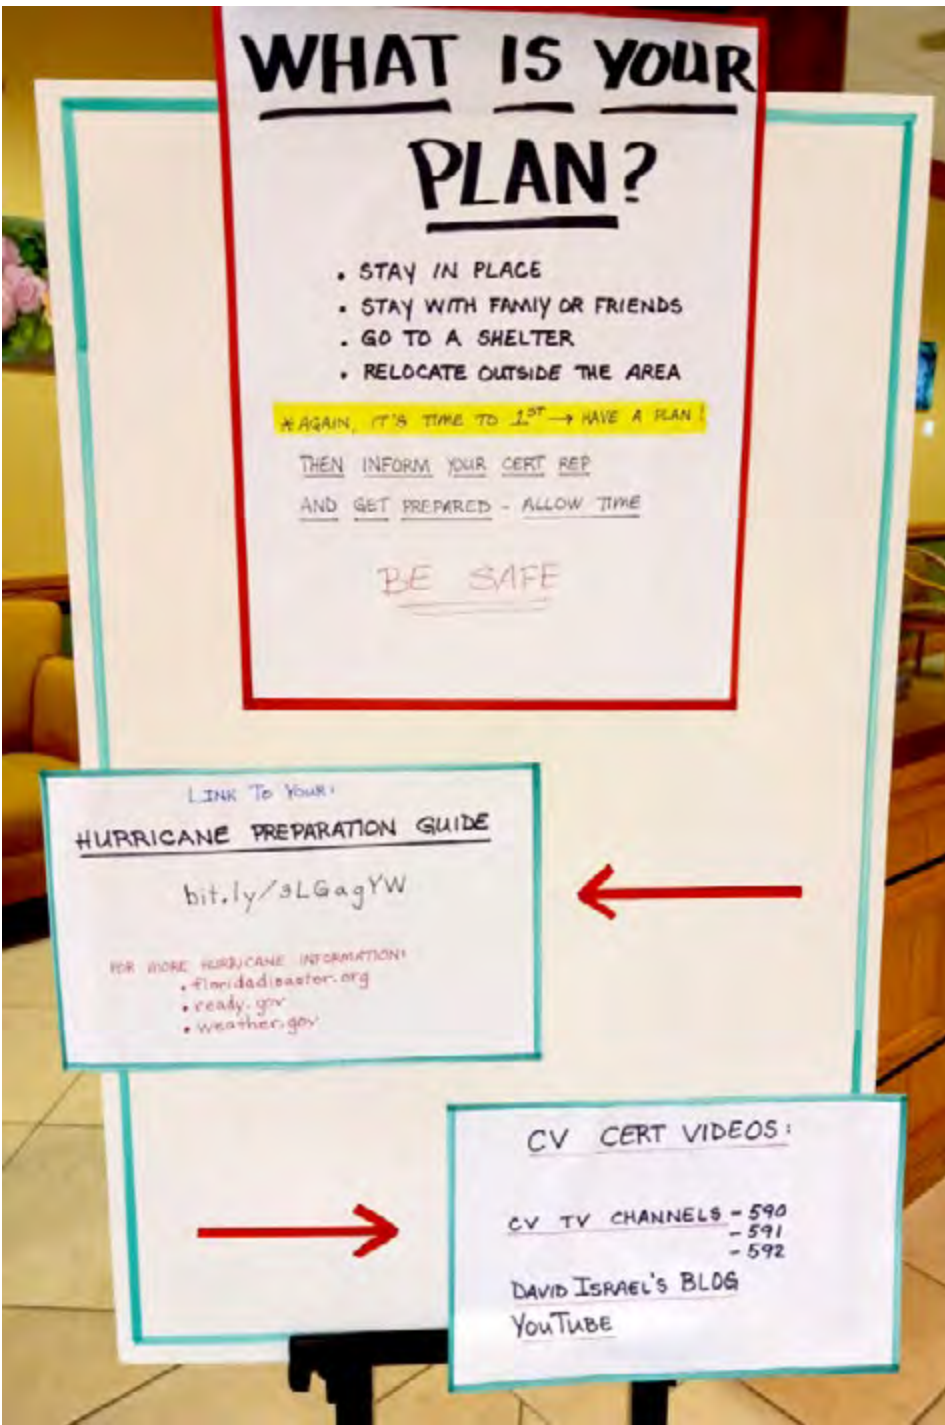 WHAT IS YOUR
PLAN?
• STAY IN PLACE
• STAY WITH FAMIY OR FRIENDS
• GO TO A SHELTER
• RELOCATE OUTSIDE THE AREA
* AGAIN, IT'S TIME TO 1ST → HAVE A PLAN!
THEN INFORM YOUR CERT REP
AND GET PREPARED - ALLOW TIME
BE SAFE
LINK TO YOUR:
HURRICANE PREPARATION GUIDE
bit.ly/3LGagYW
FOR MORE HURRICANE INFORMATION:
• floridadisaster.org
• ready.gov
• weather.gov
CV CERT VIDEOS:
CV TV CHANNELS - 590
- 591
- 592
DAVID ISRAEL'S BLOG
YOUTUBE